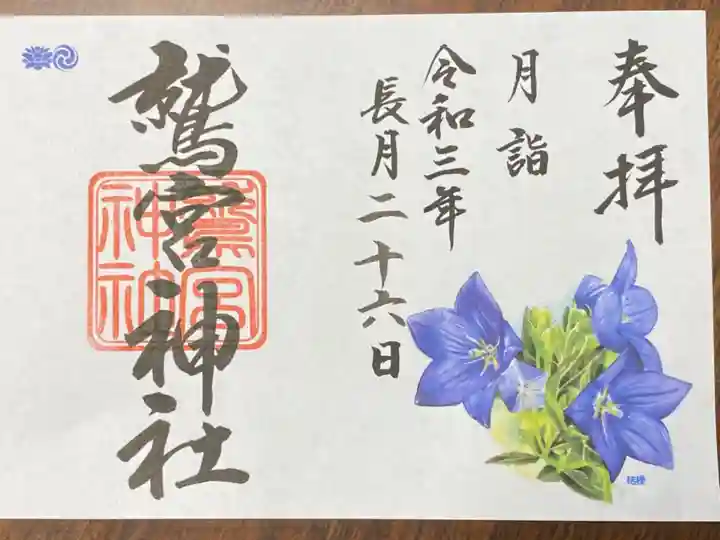 奉拝
月詣
令和三年
長月二十六日
鷲宮神社
鷲宮
神社
桔梗